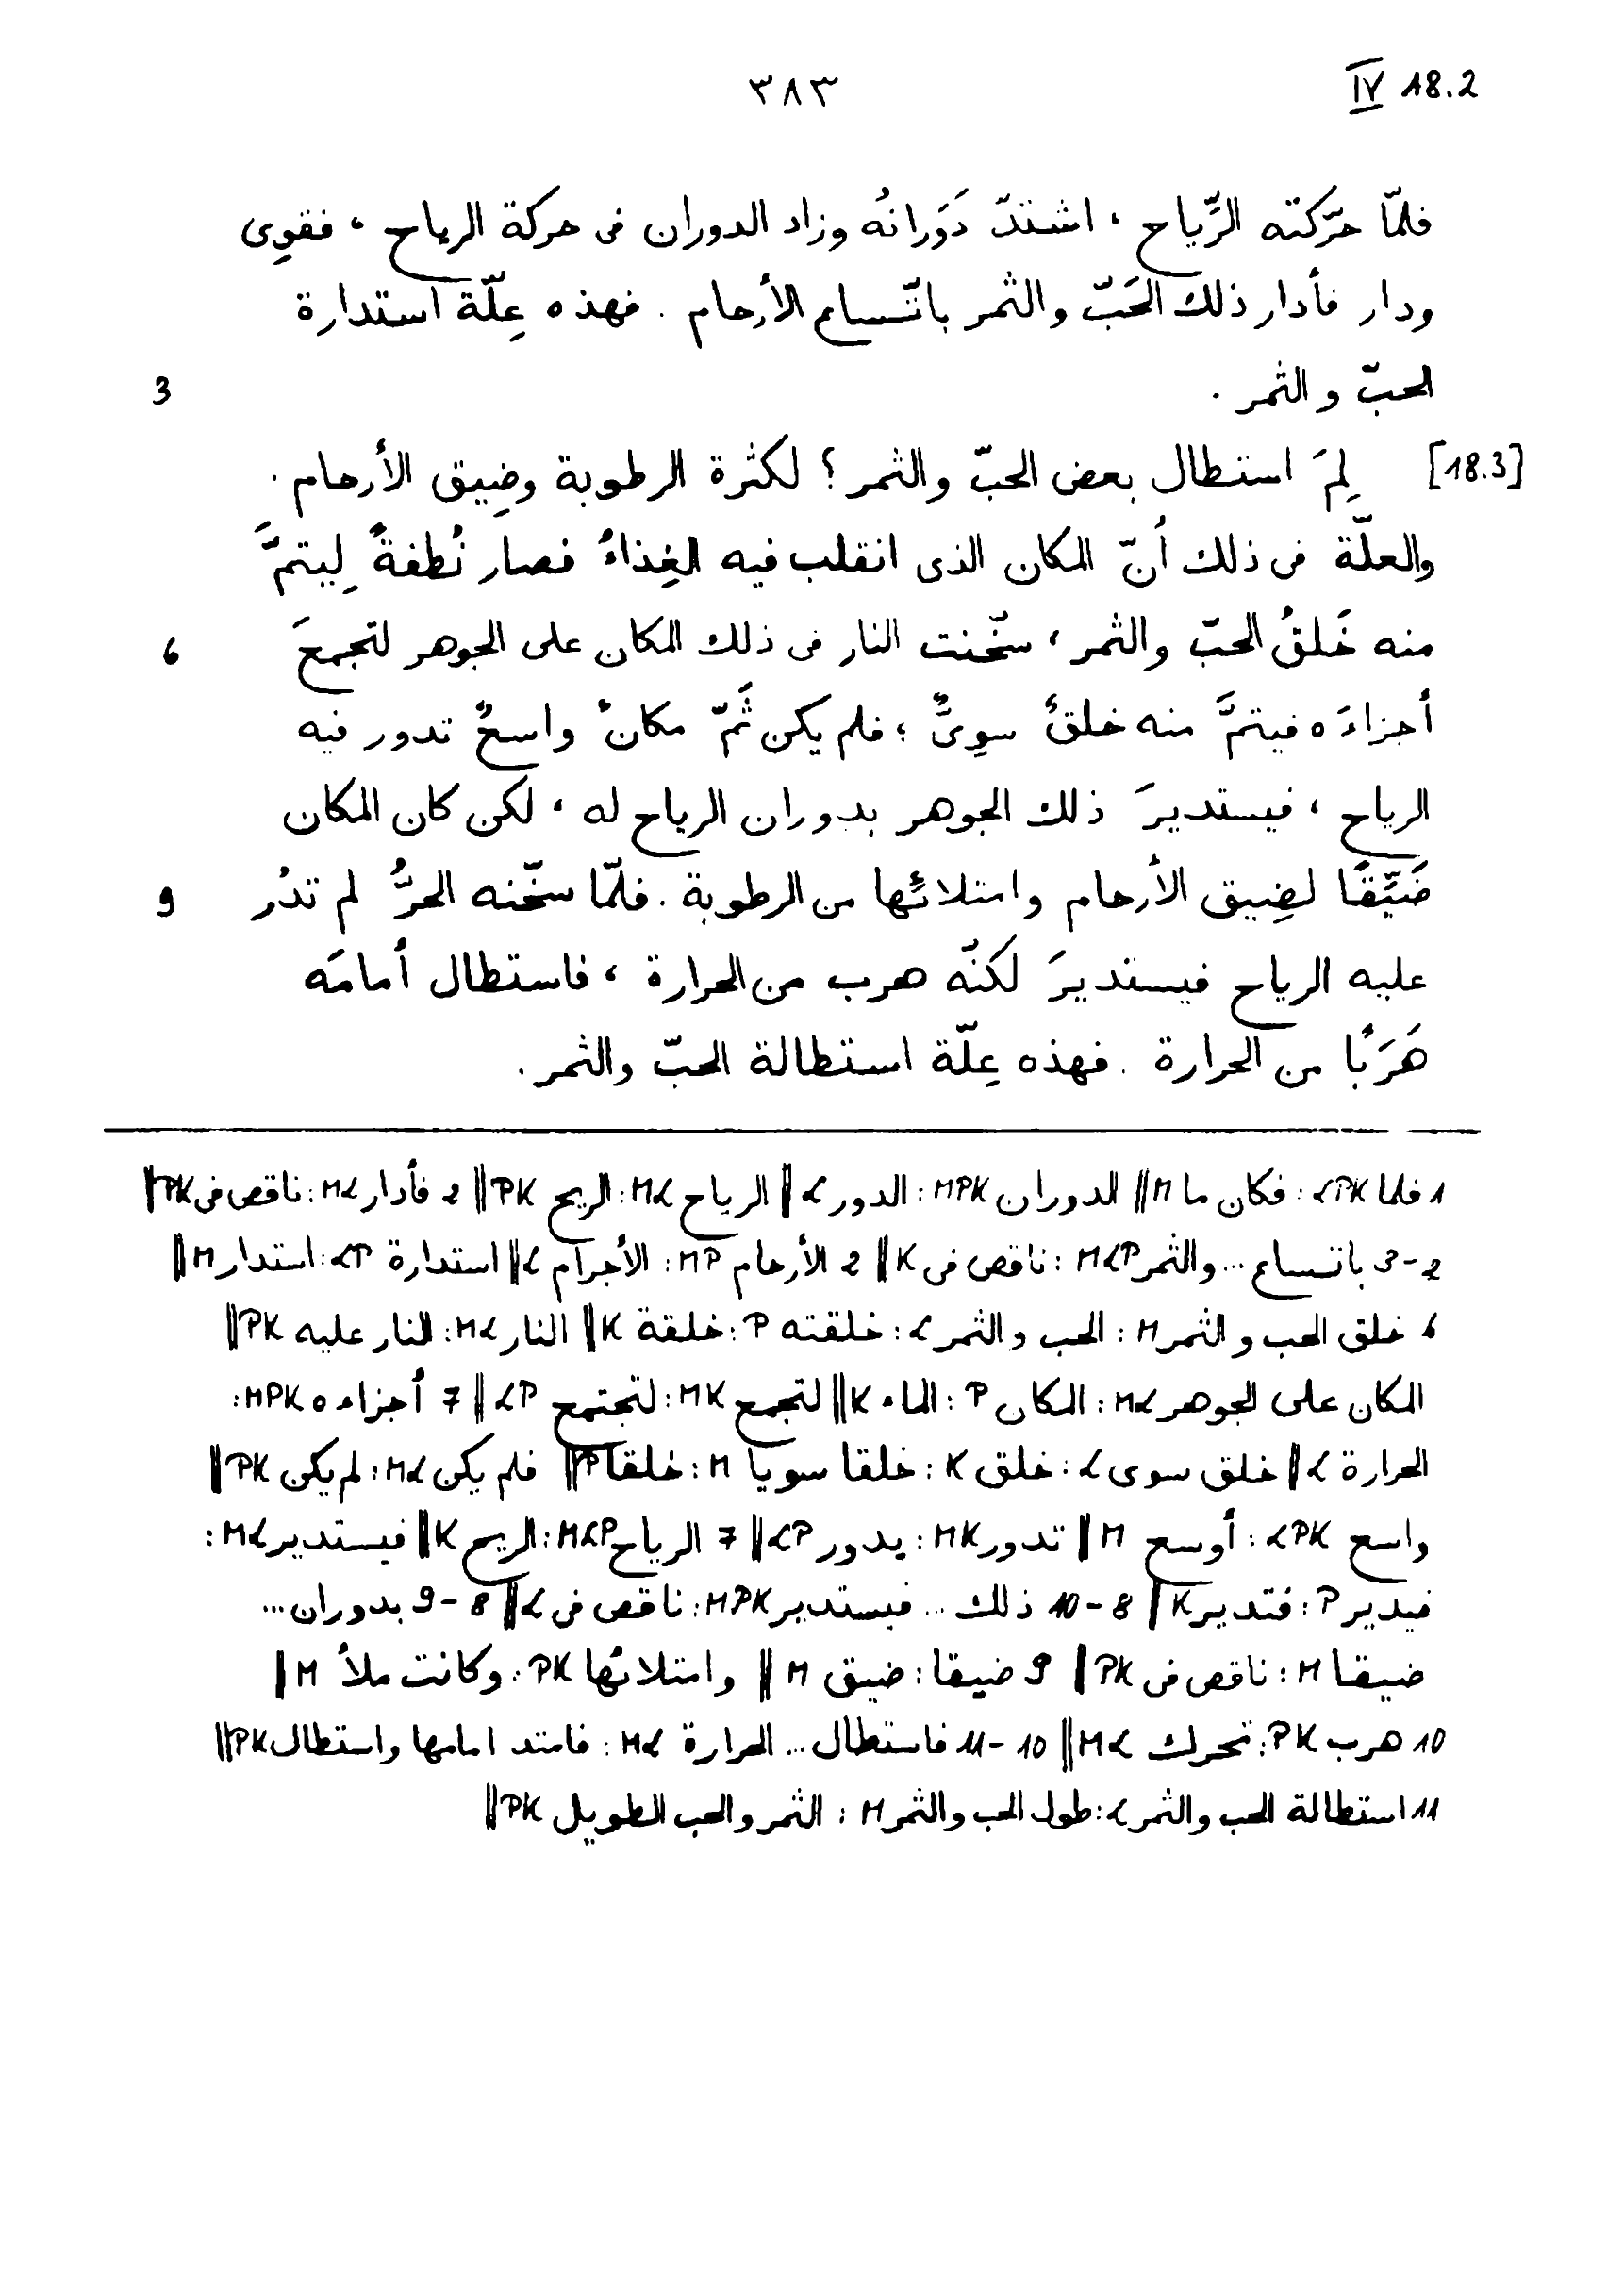 ٣٨٣ IV 18.2
فلمّا حرّكته الرِّياح ، اشتدّ دَوَرانُه وزاد الدوران فى حركة الرياح ، فقوِى
ودار فأدار ذلك الحَبّ والثمر باتّساع الأرحام . فهذه عِلّة استدارة
الحبّ والثمر . 3
[18.3] لِمَ استطال بعض الحبّ والثمر ؟ لكثرة الرطوبة وضِيق الأرحام .
والعلّة فى ذلك أنّ المكان الذى انقلب فيه الغِذاءُ فصار نُطفةً لِيتمَّ
منه خَلقُ الحبّ والثمر ، سخّنت النار فى ذلك المكان على الجوهر لتجمعَ 6
أجزاءَه فيتمَّ منه خلقٌ سوِىٌّ ؛ فلم يكن ثَمّ مكانٌ واسعٌ تدور فيه
الرياح ، فيستديرَ ذلك الجوهر بدوران الرياح له ، لكن كان المكان
ضَيِّقًا لضِيق الأرحام وامتلائِها من الرطوبة . فلمّا سخّنه الحرُّ لم تدُر 9
عليه الرياح فيستديرَ لكنّه هرب من الحرارة ، فاستطال أمامَه
هَرَبًا من الحرارة . فهذه عِلّة استطالة الحبّ والثمر .
1 فلما LPK : فكان ما M || الدوران MPK : الدور L || الرياح ML : الريح PK || 2 فأدار ML : ناقص فى PK ||
2-3 باتساع ... والثمر MLP : ناقص فى K || 2 الأرحام MP : الأجرام L || استدارة LP : استدار M ||
6 خلق الحب والثمر M : الحب والثمر L : خلقته P : خلقة K || النار ML : النار عليه PK ||
المكان على الجوهر ML : المكان P : الماء K || لتجمع MK : لتجتمع LP || 7 أجزاءه MPK :
الحرارة L || خلق سوى L : خلق K : خلقا سويا M : خلقا P || فلم يكن ML : لم يكن PK ||
واسع LPK : أوسع M || تدور MK : يدور LP || 7 الرياح MLP : الريح K || فيستدير ML :
فيدير P : فتدير K || 8-10 ذلك ... فيستدير MPK : ناقص فى L || 8-9 بدوران ...
ضيقا M : ناقص فى PK || 9 ضيقا : ضيق M || وامتلائها PK : وكانت ملأ M ||
10 هرب PK : تحرك ML || 10-11 فاستطال ... الحرارة ML : فامتد امامها واستطال PK ||
11 استطالة الحب والثمر L : طول الحب والثمر M : الثمر والحب الطويل PK ||